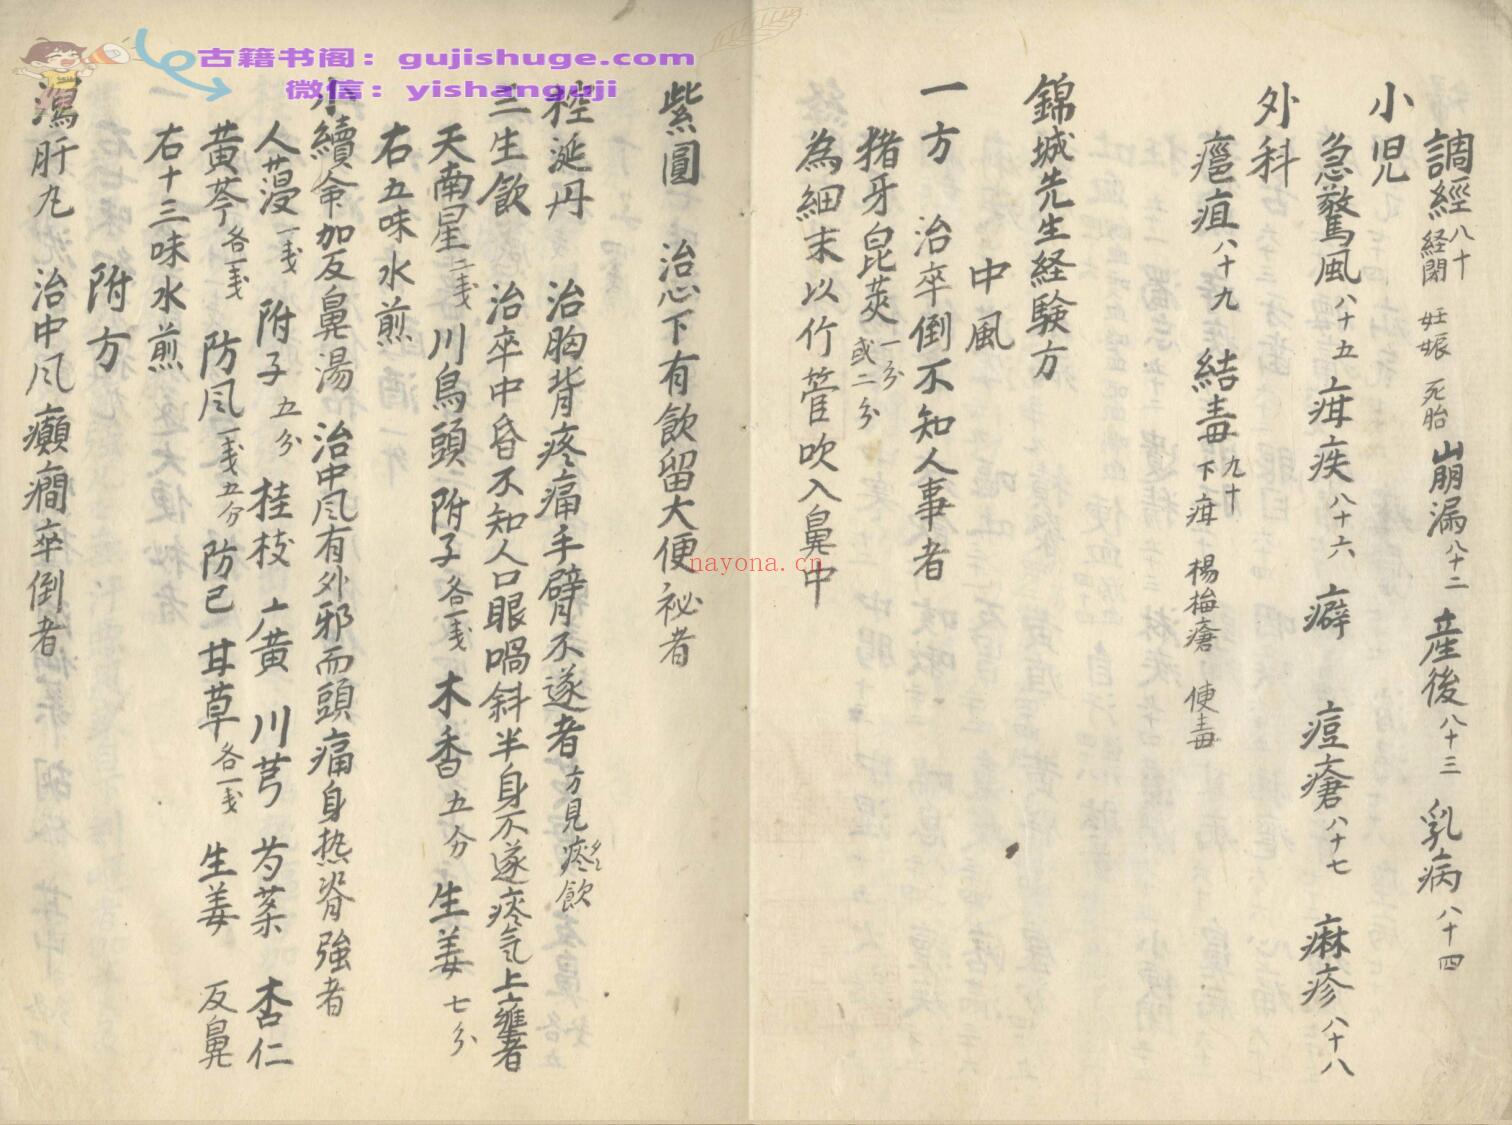 古籍书阁：gujishuge.com
微信：yishanguji
nayona.cn
調經八十 経閉 妊娠 死胎 崩漏八十二 産後八十三 乳病八十四
小児
急驚風八十五 疳疾八十六 癖 痘瘡八十七 麻疹八十八
外科
癰疽八十九 結毒九十 下疳 楊梅瘡 便毒
錦城先生経験方
中風
一方 治卒倒不知人事者
猪牙皀莢一分或二分
為細末以竹管吹入鼻中
紫圓 治心下有飲留大便祕者
控涎丹 治胸背疼痛手臂不遂者方見痰飲
三生飲 治卒中昏不知人口眼喎斜半身不遂痰気上壅者
天南星二戋 川烏頭 附子各一戋 木香五分 生姜七分
右五味水煎
小續命加反鼻湯 治中风有外邪而頭痛身热脊強者
人蓡一戋 附子五分 桂枝 广黄 川芎 芍薬 杏仁
黄芩各一戋 防风一戋五分 防已 甘草各一戋 生姜 反鼻
右十三味水煎
附方
瀉肝丸 治中风癲癇卒倒者